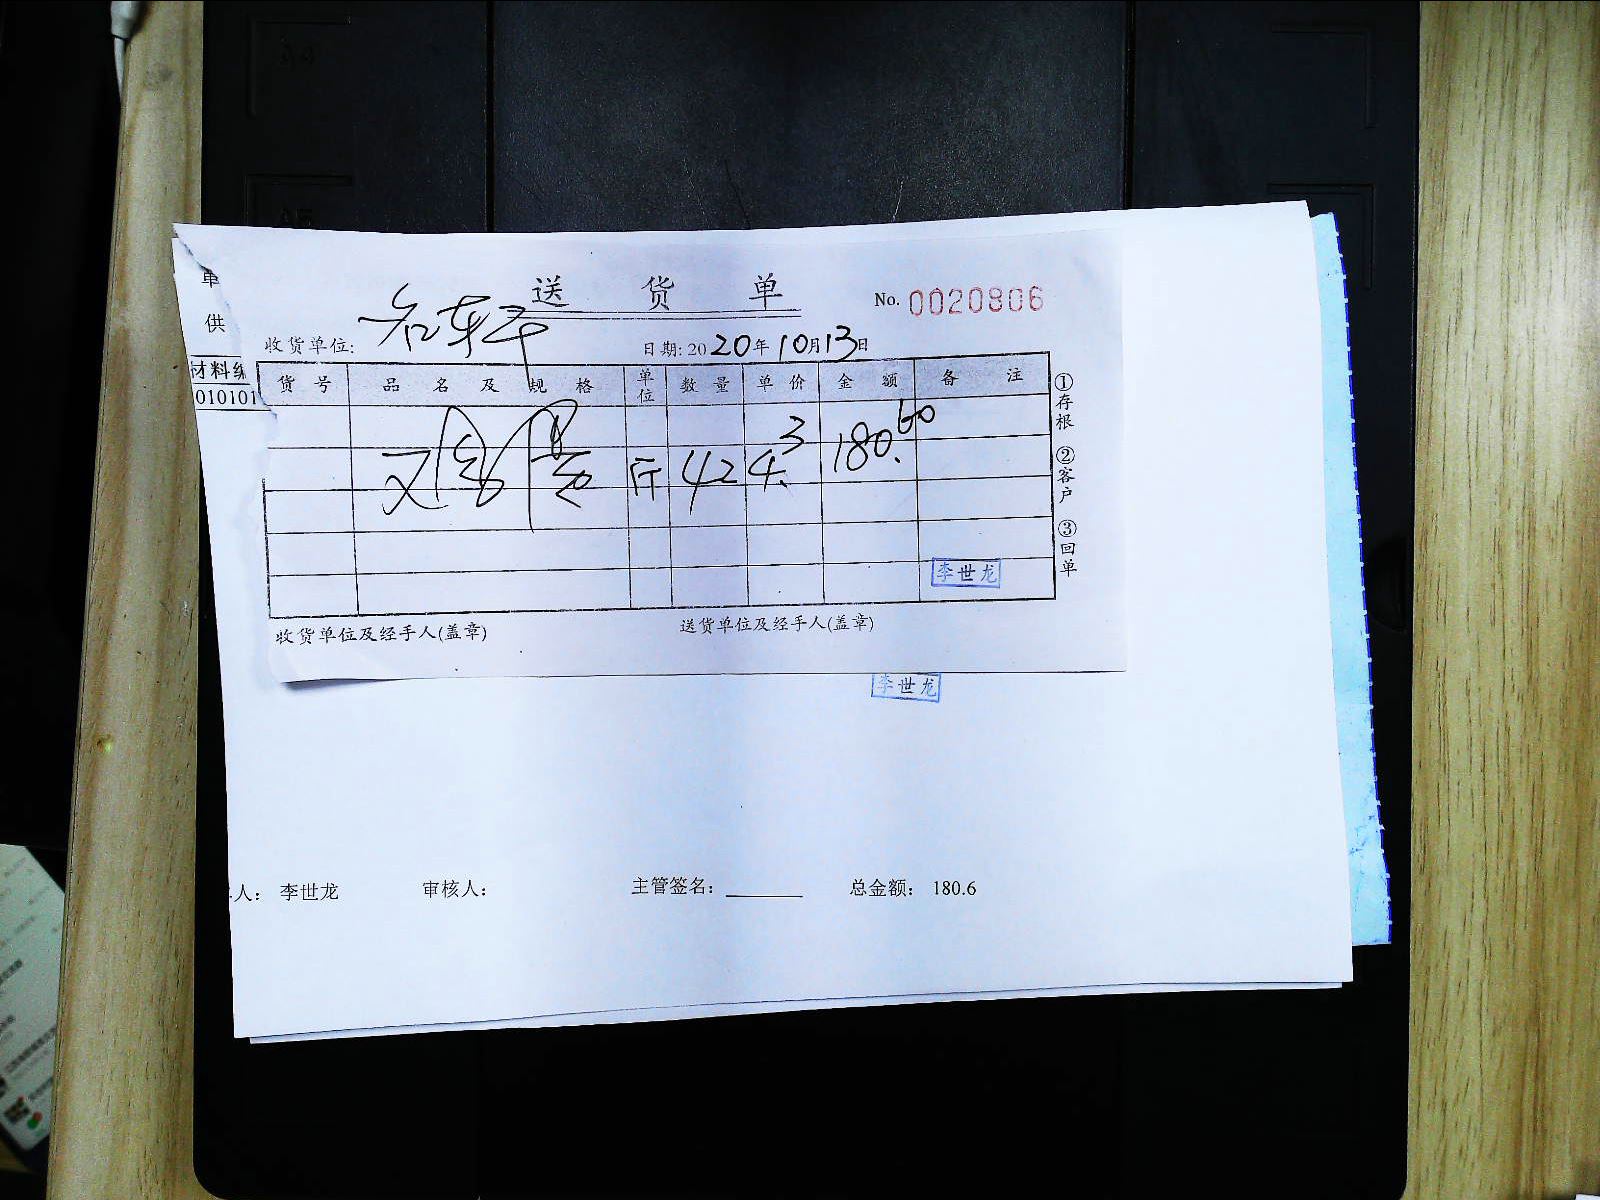 单
供
材料编
010101
送货单
No. 0020806
收货单位:
日期: 2020年10月13日
货号 品名及规格 单位 数量 单价 金额 备注
斤 42 4.3 180.60
李世龙
①存根 ②客户 ③回单
收货单位及经手人(盖章) 送货单位及经手人(盖章)
李世龙
人: 李世龙 审核人: 主管签名: 总金额: 180.6